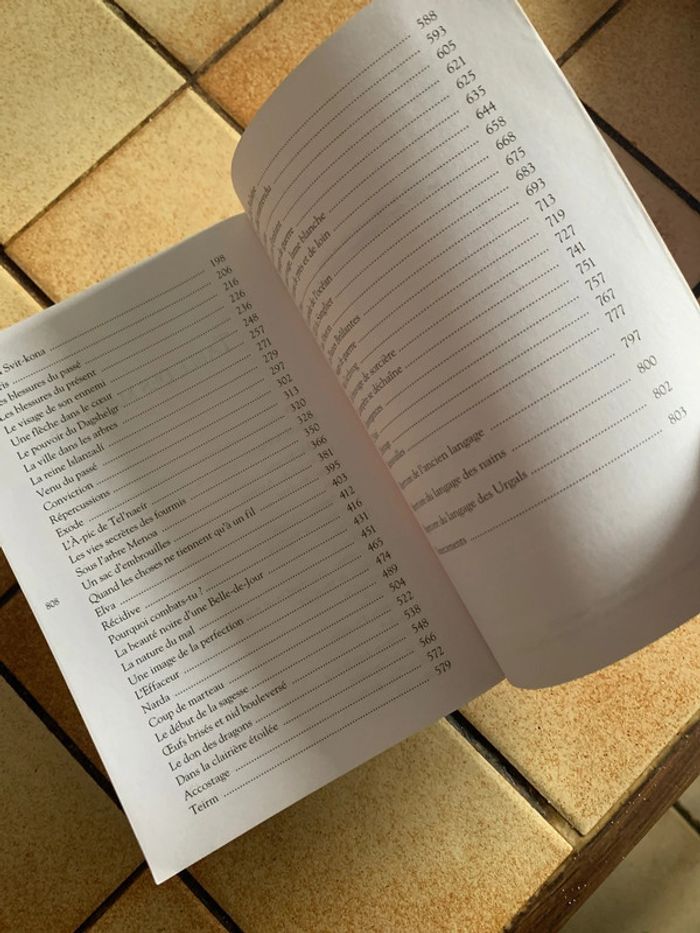 Svit-kona ........ 198
206
blessures du passé ........ 216
Les blessures du présent ........ 226
Le visage de son ennemi ........ 236
Une flèche dans le cœur ........ 248
Le pouvoir du Dagshelgr ........ 257
La ville dans les arbres ........ 271
La reine Islanzadí ........ 279
Venu du passé ........ 297
Conviction ........ 302
Répercussions ........ 313
Exode ........ 320
L'À-pic de Tel'naeír ........ 328
Les vies secrètes des fourmis ........ 350
Sous l'arbre Menoa ........ 366
Un sac d'embrouilles ........ 381
Quand les choses ne tiennent qu'à un fil ........ 395
Elva ........ 403
Récidive ........ 412
Pourquoi combats-tu ? ........ 416
La beauté noire d'une Belle-de-Jour ........ 431
La nature du mal ........ 451
Une image de la perfection ........ 465
L'Effaceur ........ 474
Narda ........ 489
Coup de marteau ........ 504
Le début de la sagesse ........ 522
Œufs brisés et nid bouleversé ........ 538
Le don des dragons ........ 548
Dans la clairière étoilée ........ 566
Accostage ........ 572
Teirm ........ 579
808
588
593
605
621
625
guerre ........ 635
lune blanche ........ 644
près et de loin ........ 658
668
de l'océan ........ 675
683
693
Brûlantes ........ 713
guerre ........ 719
727
de sorcière ........ 741
se déchaîne ........ 751
757
767
777
de l'ancien langage ........ 797
du langage des nains ........ 800
du langage des Urgals ........ 802
803